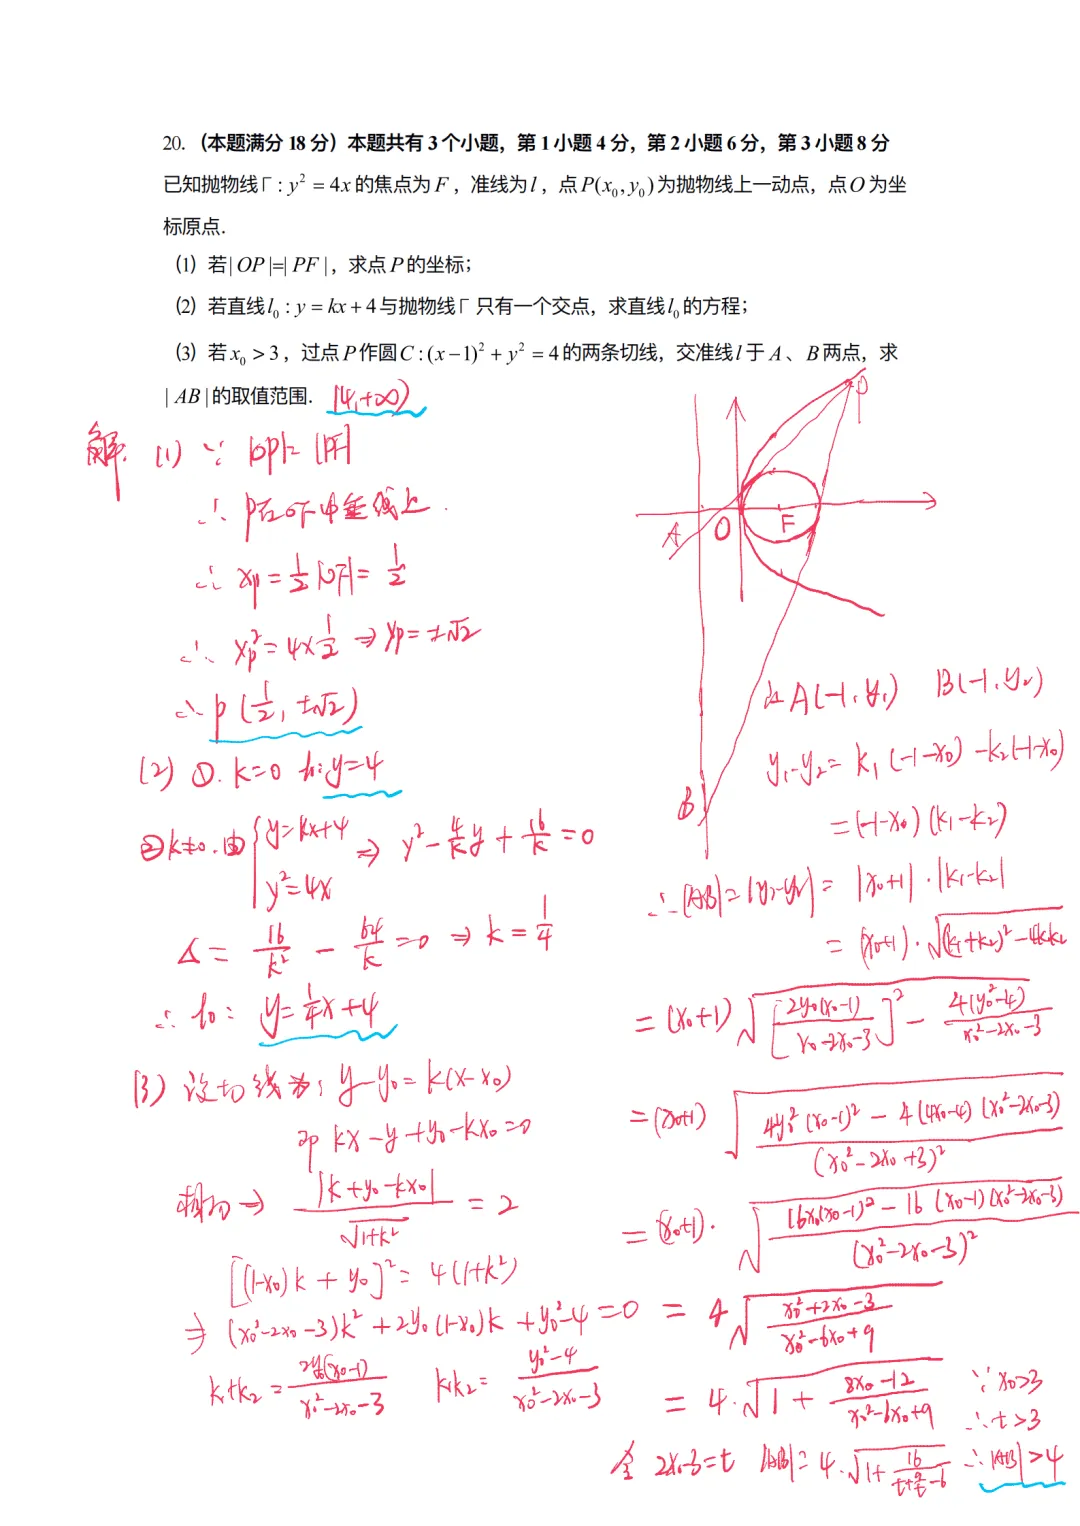 20.（本题满分 18 分）本题共有 3 个小题，第 1 小题 4 分，第 2 小题 6 分，第 3 小题 8 分
已知抛物线Γ : y² = 4x 的焦点为 F，准线为 l，点 P(x₀, y₀) 为抛物线上一动点，点 O 为坐
标原点.
（1）若| OP |=| PF |，求点 P 的坐标；
（2）若直线 l₀ : y = kx + 4 与抛物线Γ 只有一个交点，求直线 l₀ 的方程；
（3）若 x₀ > 3，过点 P 作圆 C : (x − 1)² + y² = 4 的两条切线，交准线 l 于 A、B 两点，求
| AB | 的取值范围. (4, +∞)
解. (1) ∵ |OP|= |PF|
∴ P在OF中垂线上.
∴ xp = 1/2 |OF| = 1/2
∴ xp² = 4×1/2 ⇒ yp = ±√2
∴ P (1/2, ±√2)
(2) ①. k=0 l₀: y=4
②k≠0. 由 { y=kx+4
y²=4x ⇒ y² − 4/k y + 16/k = 0
Δ = 16/k² − 64/k = 0 ⇒ k = 1/4
∴ l₀: y = 1/4 x + 4
(3) 设切线为: y−y₀ = k(x−x₀)
即 kx − y + y₀ − kx₀ = 0
相切 ⇒ |k + y₀ − kx₀| / √(1+k²) = 2
[(1−x₀)k + y₀]² = 4(1+k²)
⇒ (x₀²−2x₀−3)k² + 2y₀(1−x₀)k + y₀²−4 = 0
k₁+k₂ = 2y₀(x₀−1) / (x₀²−2x₀−3) k₁k₂ = (y₀²−4) / (x₀²−2x₀−3)
P
A
O
F
B
A(−1, y₁) B(−1, y₂)
y₁−y₂ = k₁(−1−x₀) − k₂(−1−x₀)
= (−1−x₀)(k₁−k₂)
∴ |AB| = |y₁−y₂| = |x₀+1|·|k₁−k₂|
= (x₀+1)·√((k₁+k₂)²−4k₁k₂)
= (x₀+1) √([2y₀(x₀−1) / (x₀−2x₀−3)]² − 4(y₀²−4) / (x₀²−2x₀−3))
= (x₀+1) √((4y₀²(x₀−1)² − 4(4x₀−4)(x₀²−2x₀−3)) / (x₀²−2x₀+3)²)
= (x₀+1)·√((16x₀(x₀−1)² − 16(x₀−1)(x₀²−2x₀−3)) / (x₀²−2x₀−3)²)
= 4√((x₀²+2x₀−3) / (x₀²−6x₀+9))
= 4·√(1 + (8x₀−12) / (x₀²−6x₀+9)) ∵ x₀>3
∴ t>3
令 2x₀−3=t |AB| = 4·√(1+ 16 / (t+9/t−6)) ∴ |AB|>4